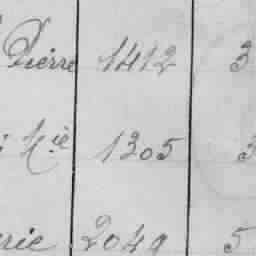 Pierre 1412 3
Cie 1305 3
rie 2049 5